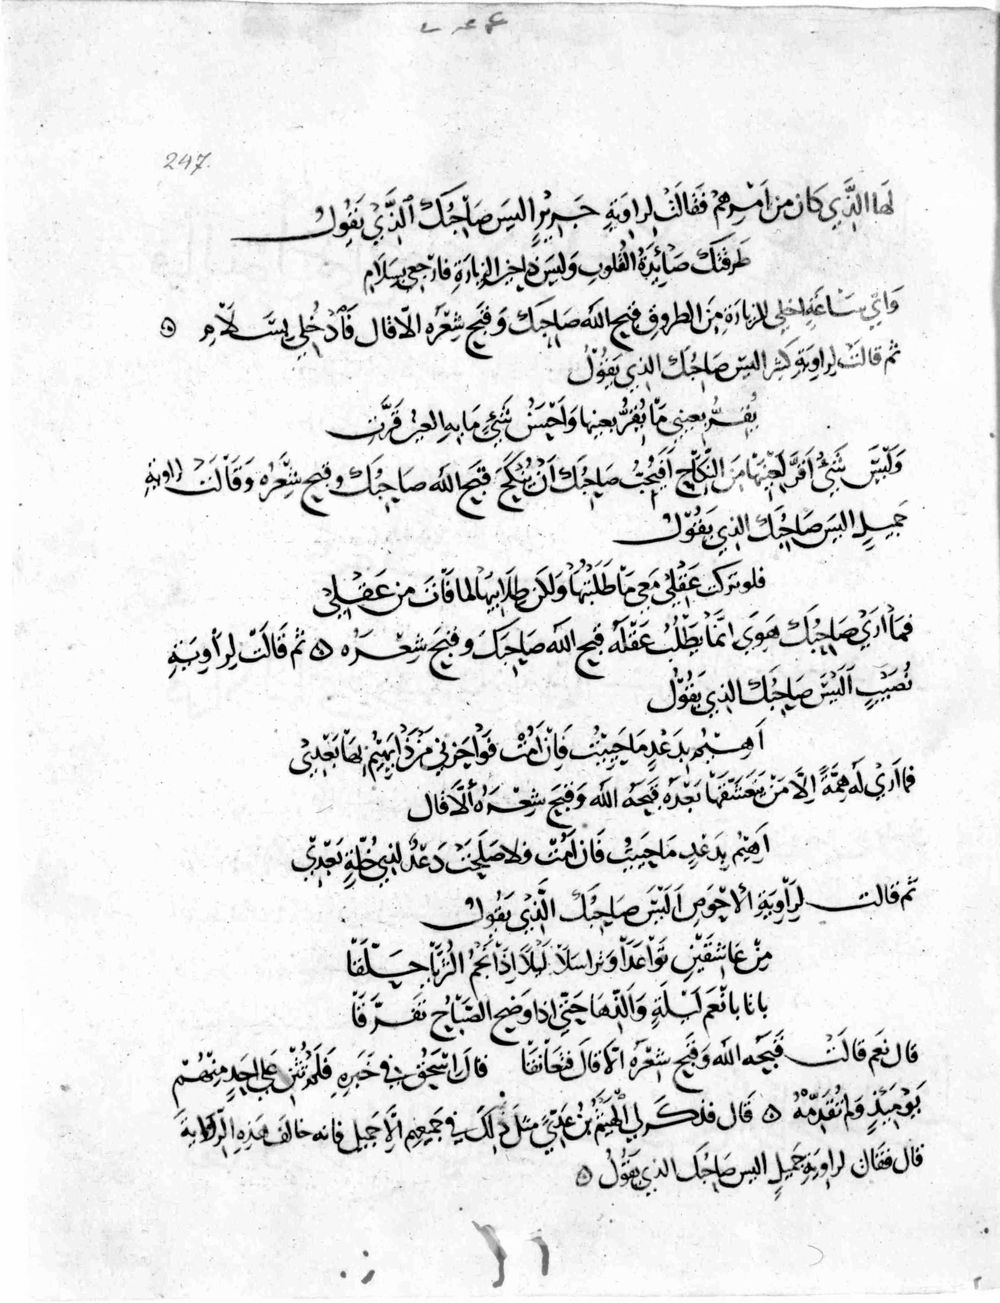 247
لَهَا الَّذِي كان من اَمْرِهِمْ فَقَالَتْ لِرَاوِيَةِ جَرِيْرٍ اليسَ صَاحِبُكَ الَّذِيْ يَقُولُ
طَرقَتْكَ صَائِدَةُ القُلوبِ وَليسَ ذا حِينَ الزِيارَةِ فارْجِعي بِسَلَامِ
وَايُّ سَاعَةٍ احلى للزيارَة مِنَ الطروقِ قبح اللهُ صَاحِبَكَ وَقَبَّحَ شِعْرَه الّا قال فَادْخُلِي بِسَلَامِ ۞
ثم قالتْ لِراوِيَةِ كثيّر اليسَ صَاحِبُكَ الذِي يَقُوْلُ
يُقِرُّ بِعيني مَا يُقِرُّ بعينها وَاحْسَنُ شَيْءٍ مَا بِهِ العينُ قَرَّتِ
وَلَيْسَ شَيْءٌ اَقَرَّ لِعَيْنِهَا مِنَ النِّكَاحِ اَفَيُحِبُّ صَاحِبُكَ اَنْ يُنْكَحَ قبَّحَ اللّه صاحِبَكَ وقبح شِعْرَه وَقَالَتْ لراوية
جَميلٍ اليسَ صَاحِبُكَ الذِي يَقُوْلُ
فلو تركت عَقْلِيْ مَعِي مَا طَلَبْتُهَا وَلكن طِلَابِيْهَا لما فَاتَ مِن عَقْلِيْ
فمَا اَرَى صَاحِبَكَ هَوِيَ انّمَا يَطْلُبُ عَقْلَهُ قبح اللهُ صَاحِبَكَ وقبَّحَ شِعْرَهُ ۞ ثم قَالَتْ لِرَاوِيَةِ
نُصَيْبٍ اَلَيْسَ صَاحِبُكَ الذِي يَقُوْلُ
اَهِيْمُ بِدَعْدٍ مَا حَيِيْتُ فَاِنْ اَمُتْ فَواحَزَنِي مَنْ ذَا يَهِيْمُ بِهَا بَعْدِيْ
فما اَرَى لَه هِمَّةً اِلَّا مَنْ يَتَعَشَّقُهَا بَعْدَه قَبَّحَهُ اللهُ وَقَبَّحَ شِعْرَهُ اَلَّا قال
اَهِيْمُ بِدَعْدٍ مَا حَيِيْتُ فَاِن اَمُتْ فلا صَلَحَتْ دَعْدٌ لذِي خُلَّةٍ بَعْدِيْ
ثم قالت لِرَاوِيَةِ الاحْوَصِ اَلَيْسَ صَاحِبُكَ الَّذِي يَقُوْلُ
مِنْ عَاشِقَيْنِ تَوَاعَدَا وَتراسَلَا لَيْلًا اِذَا نَجْمُ الثُّرَيَّا حَلَّقَا
باتا بانْعَمِ لَيْلَةٍ وَاَلَذِّهَا حَتّى اذا وَضَحَ الصَّبَاحُ تَفَرَّقَا
قال نعَم قالَتْ قَبَّحَه اللهُ وَقَبَّحَ شِعْرَهُ الّا قالَ تَعَانَقَا قالَ اسْحٰقُ في خَبَرِهِ فَلَمْ تُثْنِ عَلى اَحَدٍ مِنْهُمْ
يَوْمَئِذٍ وَلَم تُقَدِّمْهُ ۞ قال فذكَرَ لي الهَيْثَمُ بْنُ عَدِيٍّ مثلَ ذٰلِكَ في جَمِيعِهم اِلّا جَمِيل فانه خالَفَ هذِهِ الرِّوايَةَ
قال فَقَالت لراوِيَةِ جَمِيلٍ اليس صَاحِبُكَ الذي يَقُوْلُ ۞